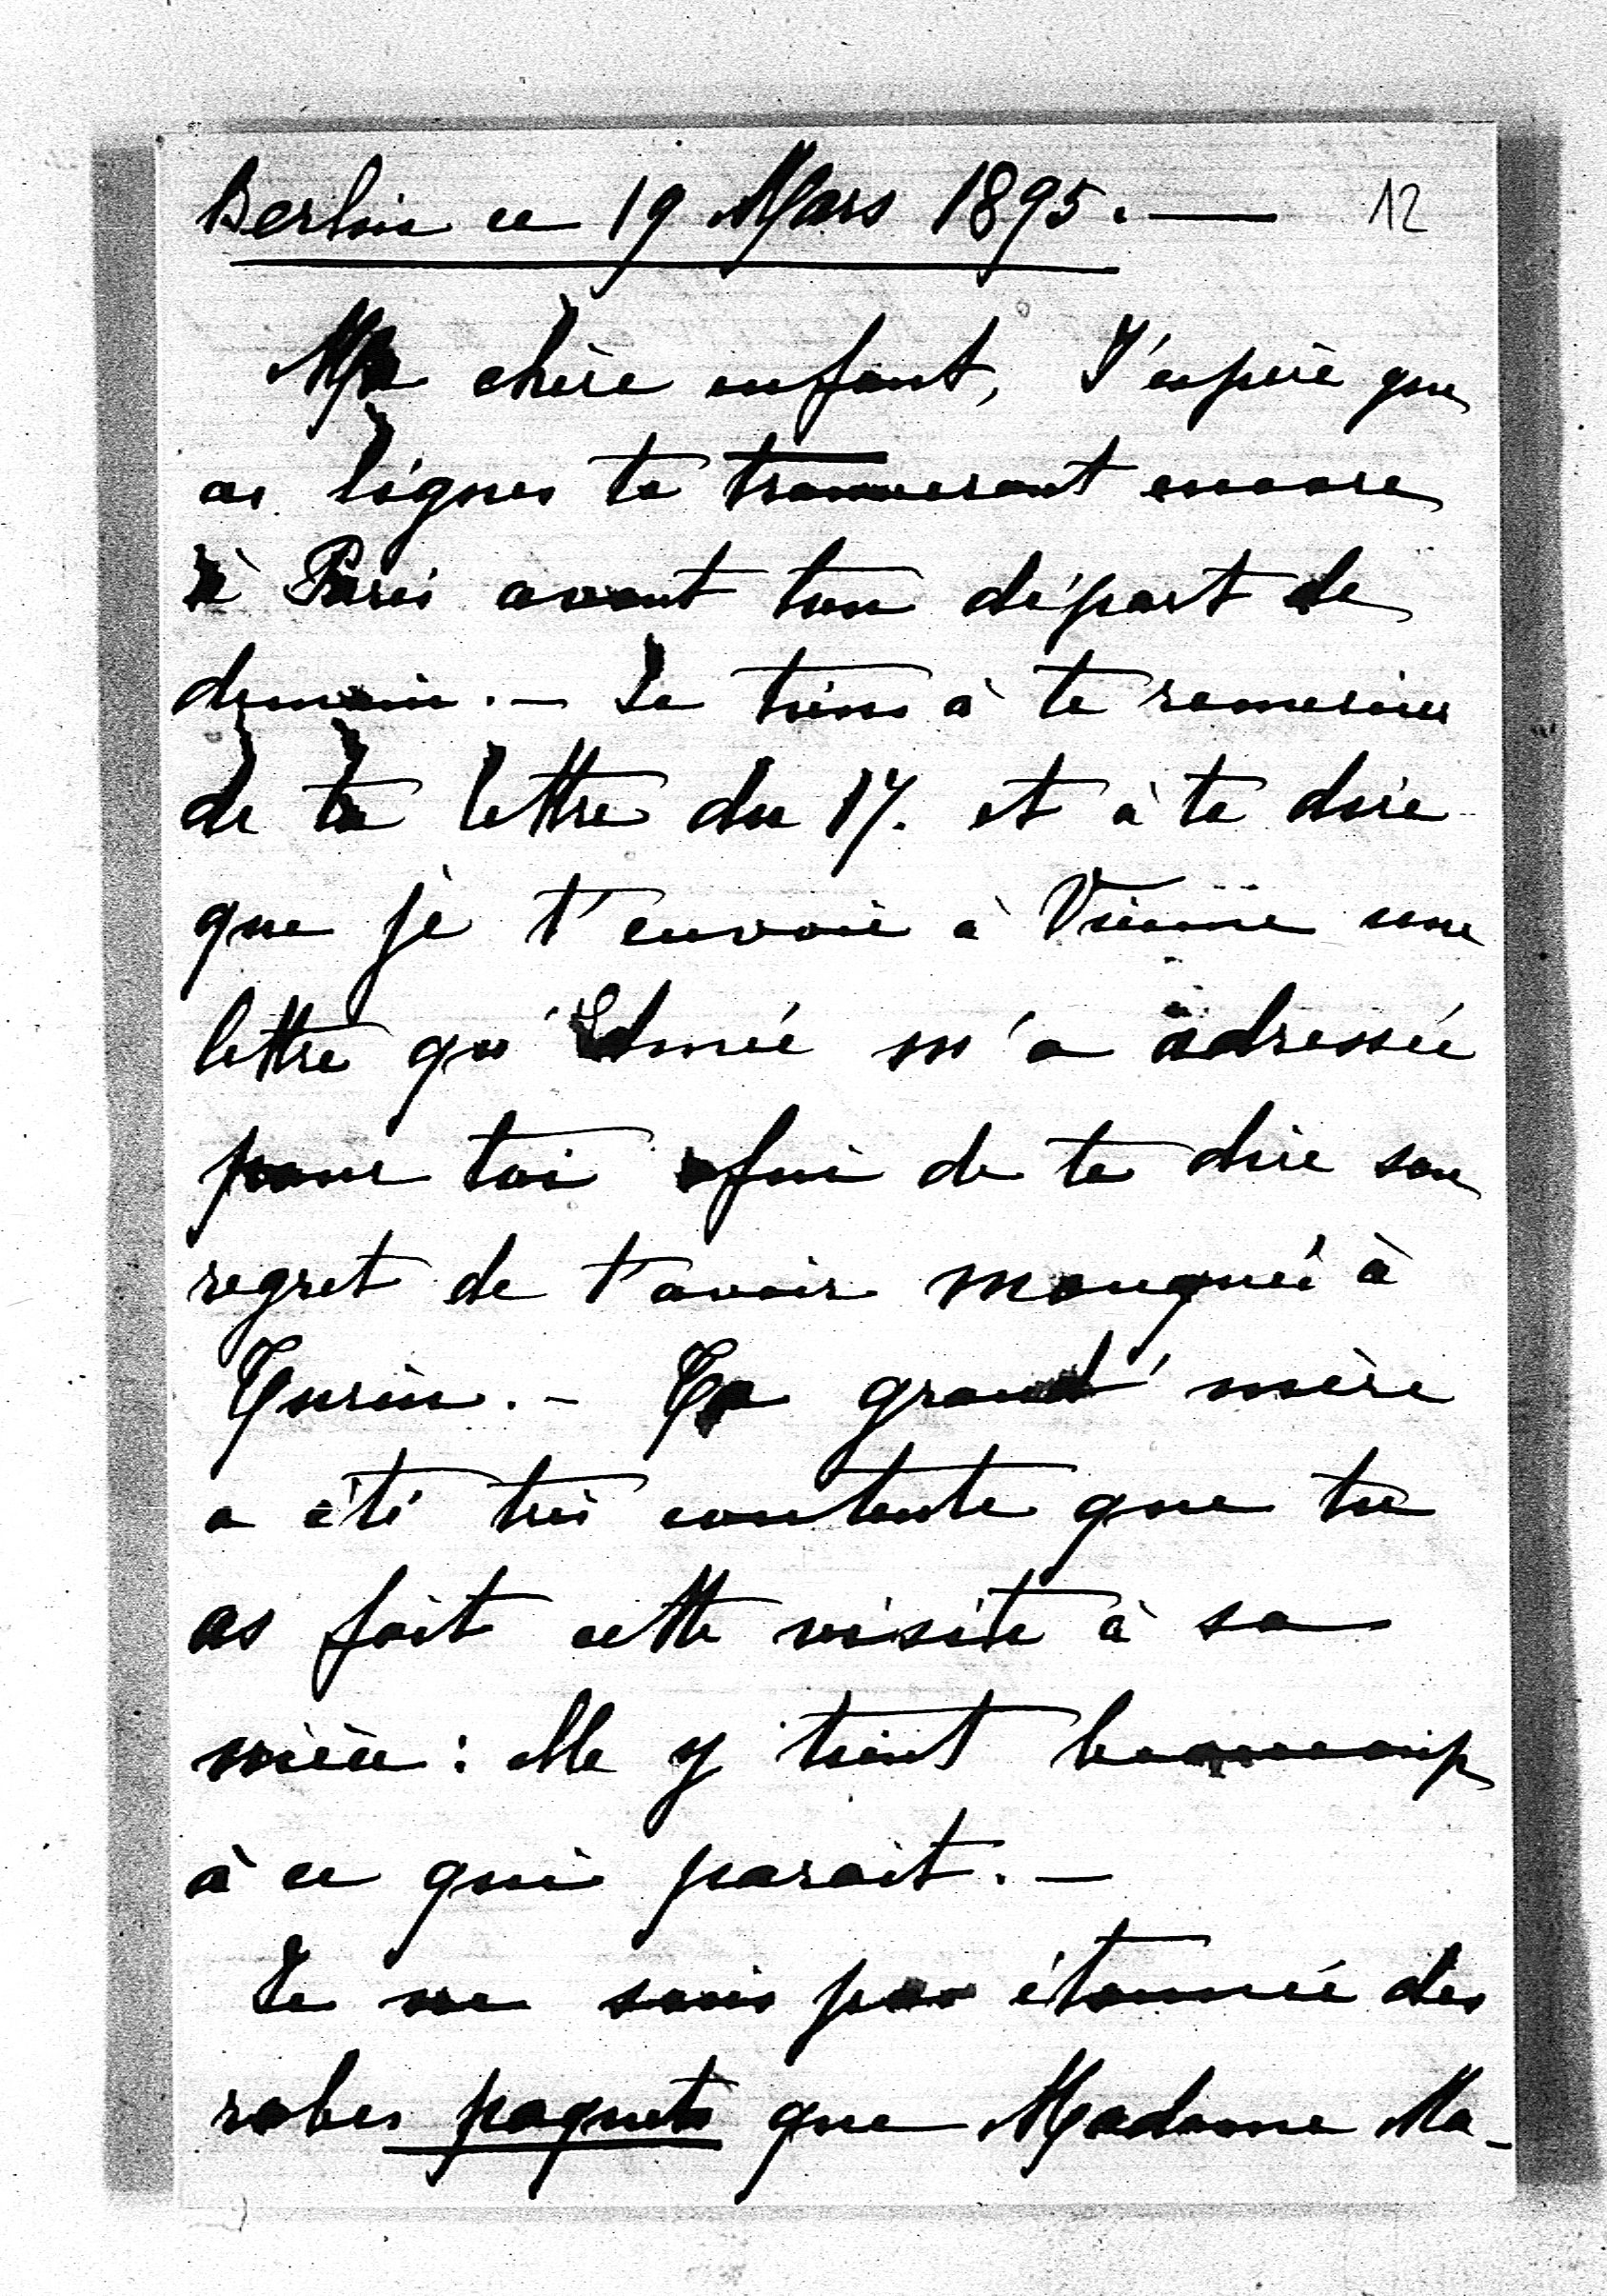 Berlin ce 19 Mars 1895. — 12
Ma chère enfant, J'espère que
ces lignes te trouveront encore
à Paris avant ton départ de
demain. — Je tiens à te remercier
de ta lettre du 17. et à te dire
que je t'envoie à Vienne une
lettre qu'Edmée m'a adressée
pour toi afin de te dire son
regret de t'avoir manquée à
Turin. — Ta grand'mère
a été très contente que tu
as fait cette visite à sa
nièce : elle y tient beaucoup
à ce qui parait. —
Je ne suis pas étonnée des
robes paquets que Madame Ma-